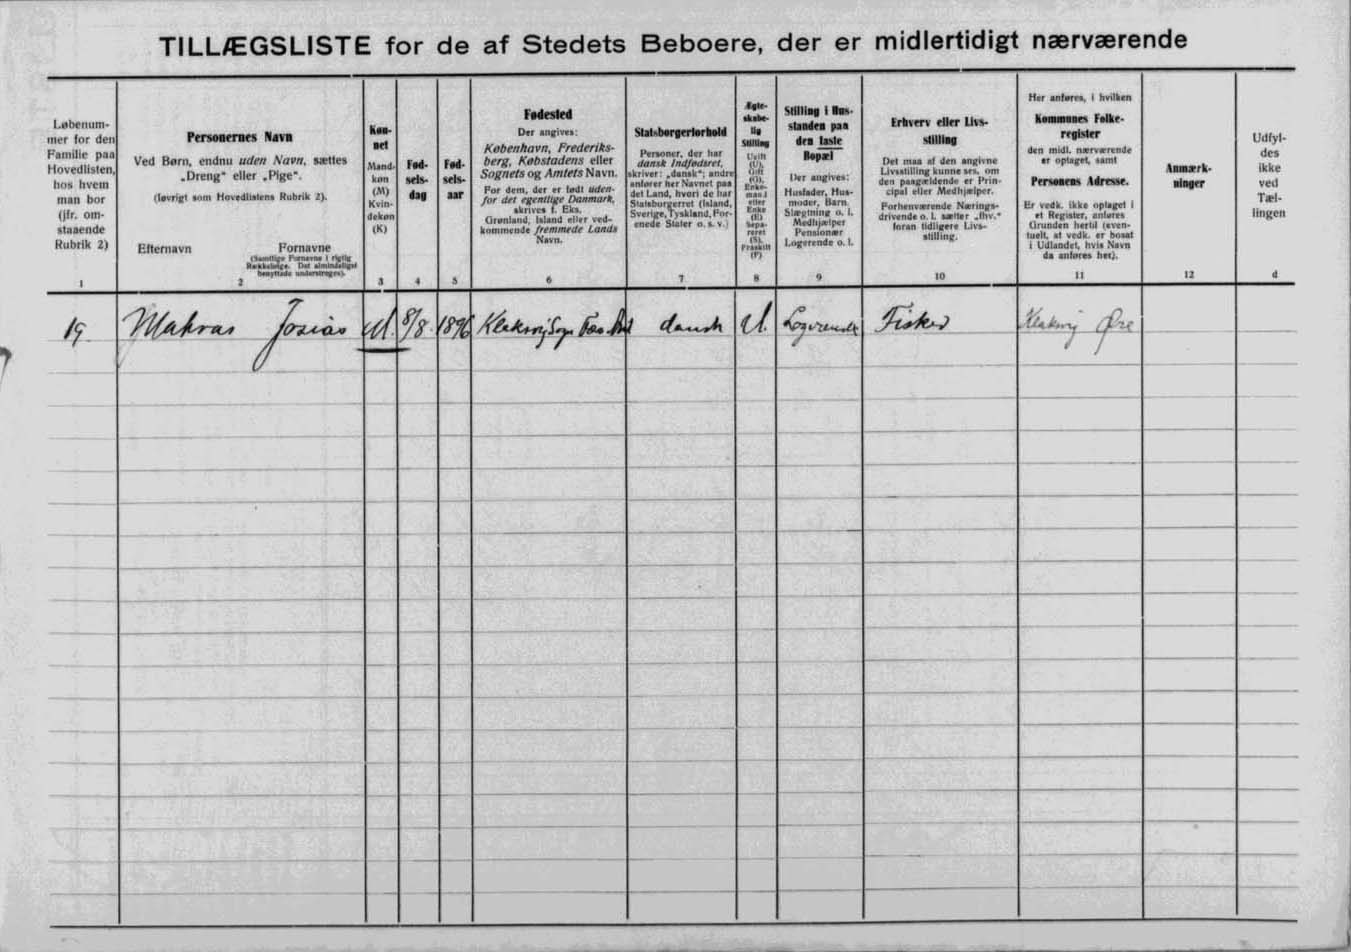 TILLÆGSLISTE for de af Stedets Beboere, der er midlertidigt nærværende
Løbenum-
mer for den
Familie paa
Hovedlisten,
hos hvem
man bor
(jfr. om-
staaende
Rubrik 2)
1
Personernes Navn
Ved Børn, endnu uden Navn, sættes
„Dreng“ eller „Pige“.
(Iøvrigt som Hovedlistens Rubrik 2).
Efternavn
Fornavne
(Samtlige Fornavne i rigtig
Rækkefølge. Det almindeligst
benyttede understreges).
2
Køn-
net
Mand-
køn
(M)
Kvin-
dekøn
(K)
3
Fød-
sels-
dag
4
Fød-
sels-
aar
5
Fødested
Der angives:
København, Frederiks-
berg, Købstadens eller
Sognets og Amtets Navn.
For dem, der er født uden-
for det egentlige Danmark,
skrives f. Eks.
Grønland, Island eller ved-
kommende fremmede Lands
Navn.
6
Statsborgerforhold
Personer, der har
dansk Indfødsret,
skriver: „dansk“; andre
anfører her Navnet paa
det Land, hvori de har
Statsborgerret (Island,
Sverige, Tyskland, For-
enede Stater o. s. v.)
7
Ægte-
skabe-
lig
Stilling
Ugift
(U),
Gift
(G),
Enke-
mand
eller
Enke
(E)
Sepa-
reret
(S),
Fraskilt
(F)
8
Stilling i Hus-
standen paa
den faste
Bopæl
Der angives:
Husfader, Hus-
moder, Barn,
Slægtning o. l.
Medhjælper
Pensionær
Logerende o. l.
9
Erhverv eller Livs-
stilling
Det maa af den angivne
Livsstilling kunne ses, om
den paagældende er Prin-
cipal eller Medhjælper.
Forhenværende Nærings-
drivende o. l. sætter „fhv.“
foran tidligere Livs-
stilling.
10
Her anføres, i hvilken
Kommunes Folke-
register
den midl. nærværende
er optaget, samt
Personens Adresse.
Er vedk. ikke optaget i
et Register, anføres
Grunden hertil (even-
tuelt, at vedk. er bosat
i Udlandet, hvis Navn
da anføres her).
11
Anmærk-
ninger
12
Udfyl-
des
ikke
ved
Tæl-
lingen
d
19. Josias M. 8/8. 1896 Klaksvig Sogn dansk U. Logerende Fisker Klaksvig